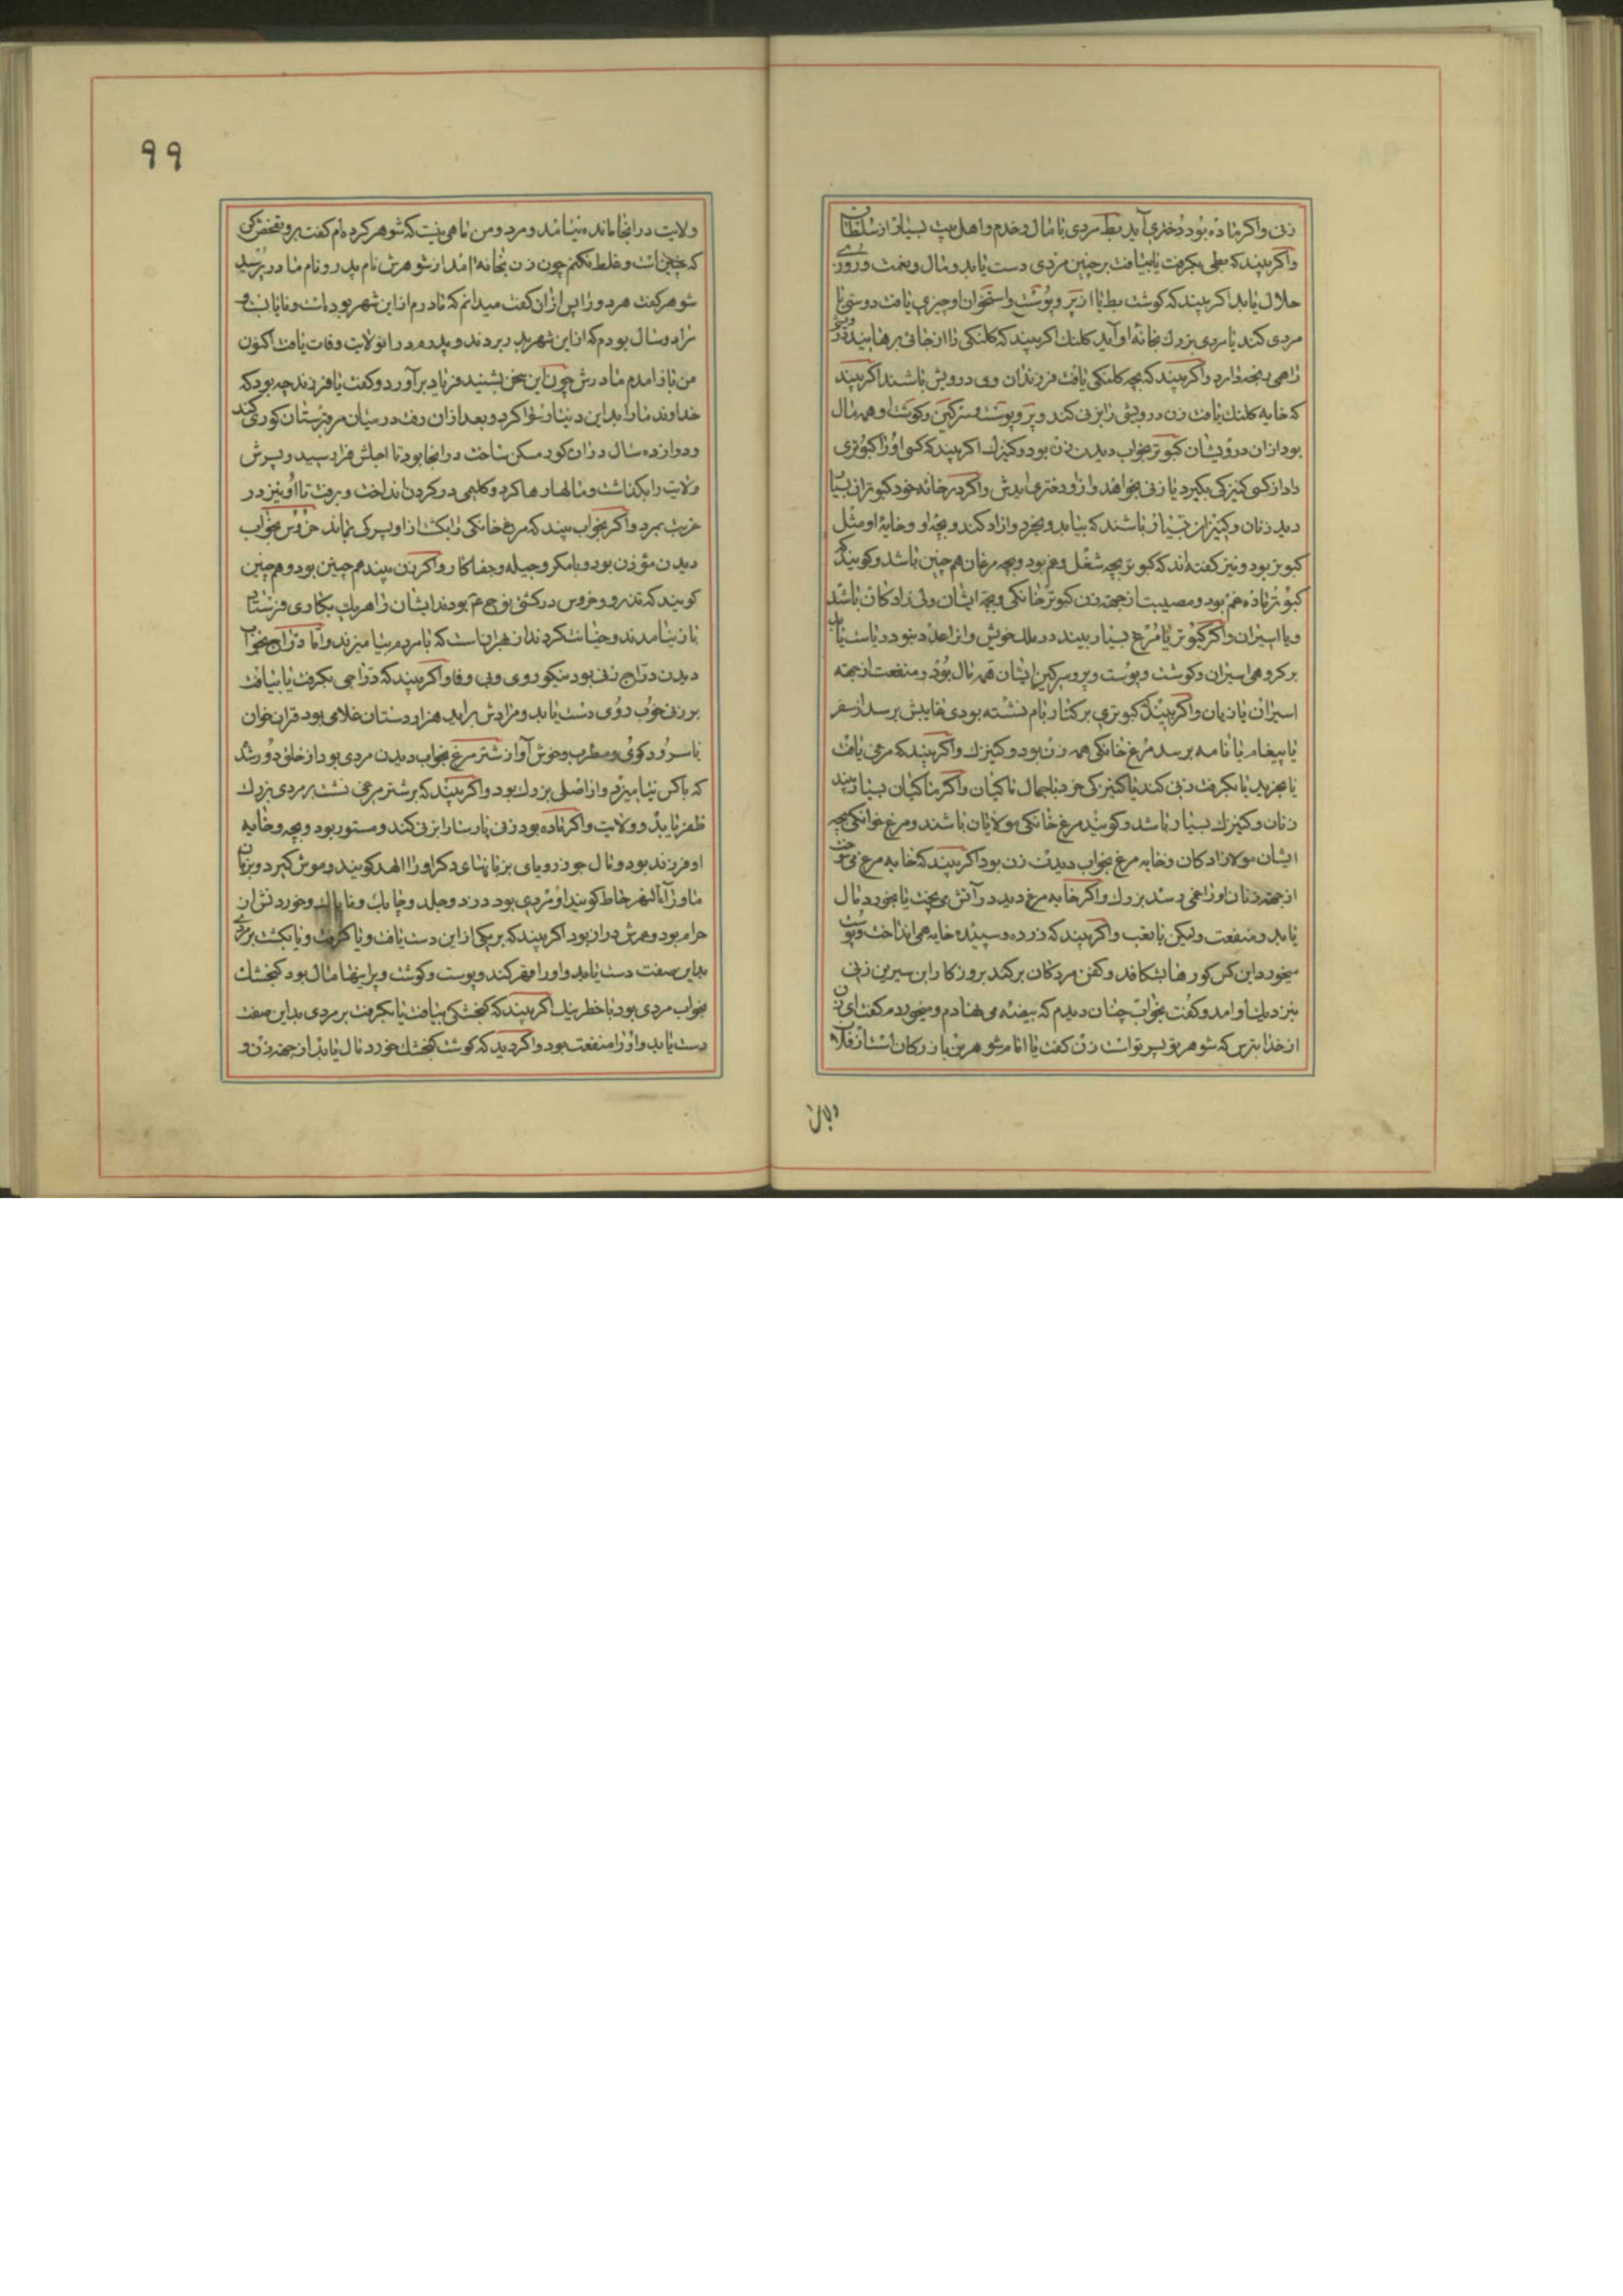 زنی واکر ماده بود دختری آید بط مردی با مال و خدم و اهل بیت بسیار از سلطان
واکر بیند که بطی بکرفت یا بیافت بر چنین مردی دست یابد و مال و نعمت و روزی
حلال یابد اکر بیند که کوشت بط یا از پر و پوست و استخوان او چیزی یافت دوستی با
مردی کند یا مردی بزرك بخانه او آید کلنك اکر بیند که کلنکی را از جائی برهانید درویشی
راهی رنجه دارد واکر بیند که بچه کلنکی یافت فرزندان وی درویش باشند اکر بیند
که خایه کلنك یافت زن درویشی را بزنی کند و پر و پوست و سرکین و کوشت او همه مال
بود از ان درویشان کبوتر بخواب دیدن زن بود و کنیزك اکر بیند که کسی او را کبوتری
داد از کسی کنیزکی بکیرد یا زنی بخواهد و از او دختری ایدش واکر در خانه خود کبوتران بسیار
دید زنان و کنیزان بسیار باشند که بیابد و بخرد و ازاد کند و بچه او و خایه او مثل
کبوتر بود و نیز کفته‌اند که کبوتر بچه شغل و غم بود و بچه مرغان هم چنین باشد و کویند که
کبوتر ماده غم بود و مصیبت از جهة زن کبوتر خانکی و بچه ایشان ولی زادکان باشد
و یا اسیران واکر کبوتر یا مرغ بسیار بیند در ملك خویش و انرا عدد نبود ریاست یابد
بر کروهی اسیران و کوشت و پوست و پر و سرکین ایشان همه مال بود و منفعت از جهة
اسیران یا زنان واکر بیند که کبوتری بر کنار بام نشسته بودی غایبش برسد از سفر
یا پیغام یا نامه برسد مرغ خانکی همه زن بود و کنیزك واکر بیند که مرغی یافت
یا بخرید یا بکرفت زنی کند یا کنیزکی خرد با جمال ماکیان واکر ماکیان بسیار بیند
زنان و کنیزك بسیار باشد و کویند مرغ خانکی مولایان باشند و مرغ خوانکی بچه
ایشان مولازادکان و خایه مرغ بخواب دیدن زن بود اکر بیند که خایه مرغ می
از جهة زنان او را غمی رسد بزرك واکر خایه مرغ دید در آتش می‌پخت یا بخورد مال
یابد و منفعت ولیکن با تعب واکر بیند که زرده و سپیده خایه همی انداخت و پوست
میخورد این کس کورها بشکافد و کفن مردکان برکند بروزکار ابن سیرین زنی
بنزدیك او امد و کفت بخواب چنان دیدم که بیضه می نهادم و میخوردم کفت ای زن
از خدا بترس که شوهر تو پسر تو است زن کفت یا امام شوهر من بازرکان است از فلان
الان
٩٩
ولایت در انجا مانده نیامد و مرد و من ناهمی نیست که شوهر کرده‌ام کفت برو تفحص کن
که چنین است و غلط نکنم چون زن بخانه امد از شوهرش نام پدر و نام مادر پرسید
شوهر کفت هر دو را پس از ان کفت میدانم که مادرم از این شهر بوده است و نایاب است و
مرا دو سال بودم که از این شهر پدر بردند و پدرم در ان ولایت وفات یافت اکنون
من باز امدم مادرش چون این سخن بشنید فریاد برآورد و کفت یا فرزند چه بود که
خداوند ما را بداین دنیا رسوا کرد و بعد از ان رفت در میان مرقبرستان کوری کند
و دوازده سال در ان کور مسکن ساخت در انجا بود تا اجلش فرا رسید و پسرش
ولایت را بکذاشت و مالها رها کرد و کلیمی در کردن انداخت و برفت تا او نیز در
غربت بمرد واکر بخواب بیند که مرغ خانکی را بکشت از او پسرکی بماند خروس بخواب
دیدن مؤذن بود و با مکر و حیله و جفا کار واکر زن بیند هم چنین بود و هم چنین
کویند که تذرو و خروس در کشتی نوح ع م بودند ایشان را هر یك بکاری فرستادند
باز نیامدند و خیانت کردند از بهر ان است که با مردم نیامیزند و اما دراج بخواب
دیدن دراج زنی بود نیکو روی و بی وفا واکر بیند که دراجی بکرفت یا بیافت
بر زنی خوب روی دست یابد و مرادش براید هزاردستان غلامی بود قران خوان
یا سرود کوی و مطرب و خوش آواز شتر مرغ بخواب دیدن مردی بود از خلق دور شد
که با کس نیامیزد و از اصلی بزرك بود واکر بیند که بر شتر مرغی نشست بر مردی بزرك
ظفر یابد و ولایت واکر ماده بود زنی پارسا را بزنی کند و مستور بود و بچه و خایه
او فرزند بود و مال جوز رویای بزبانهای دکر او را الهد کویند و موش کیر و بزبان
ماوراء النهر خاط کویند او مردی بود دزد و جلد و چابك و ناپاك و خوردنش ان
حرام بود و عمرش دراز بود اکر بیند که بر یکی از این دست یافت و یا کرفت و یا بکشت بر مردی
بداین صفت دست یابد و او را مقهر کند و پوست و کوشت و پر اینها مال بود کنجشك
بخواب مردی بود با خطر نیك اکر بیند که کنجشکی بیافت یا بکرفت بر مردی بداین صفت
دست یابد و او را منفعت بود واکر دید که کوشت کنجشك خورد مال یابد از جهة زن و